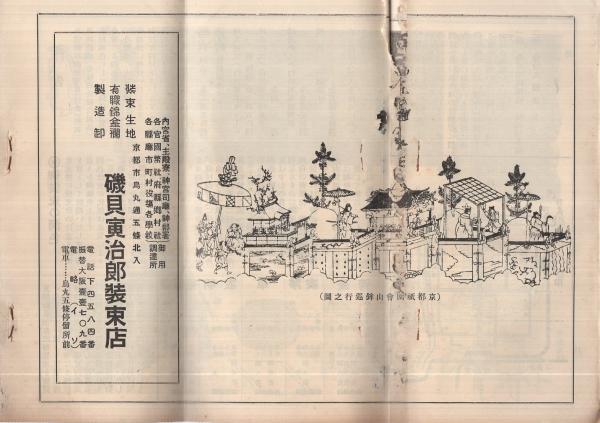 (圖之行巡鉾山會園祇都京)
內宮省、主殿寮、神宮司廳、神部署 御用
各官國幣社府縣鄉村社 調達所
各縣廳市町村役場各學校
裝束生地
有職錦金襴
製造卸
京都市烏丸通五條北入
磯貝寅治郎裝束店
電話下四五八四番
振替大阪壹壹七〇九番
電略(イソ)
電車……烏丸五條停留所前